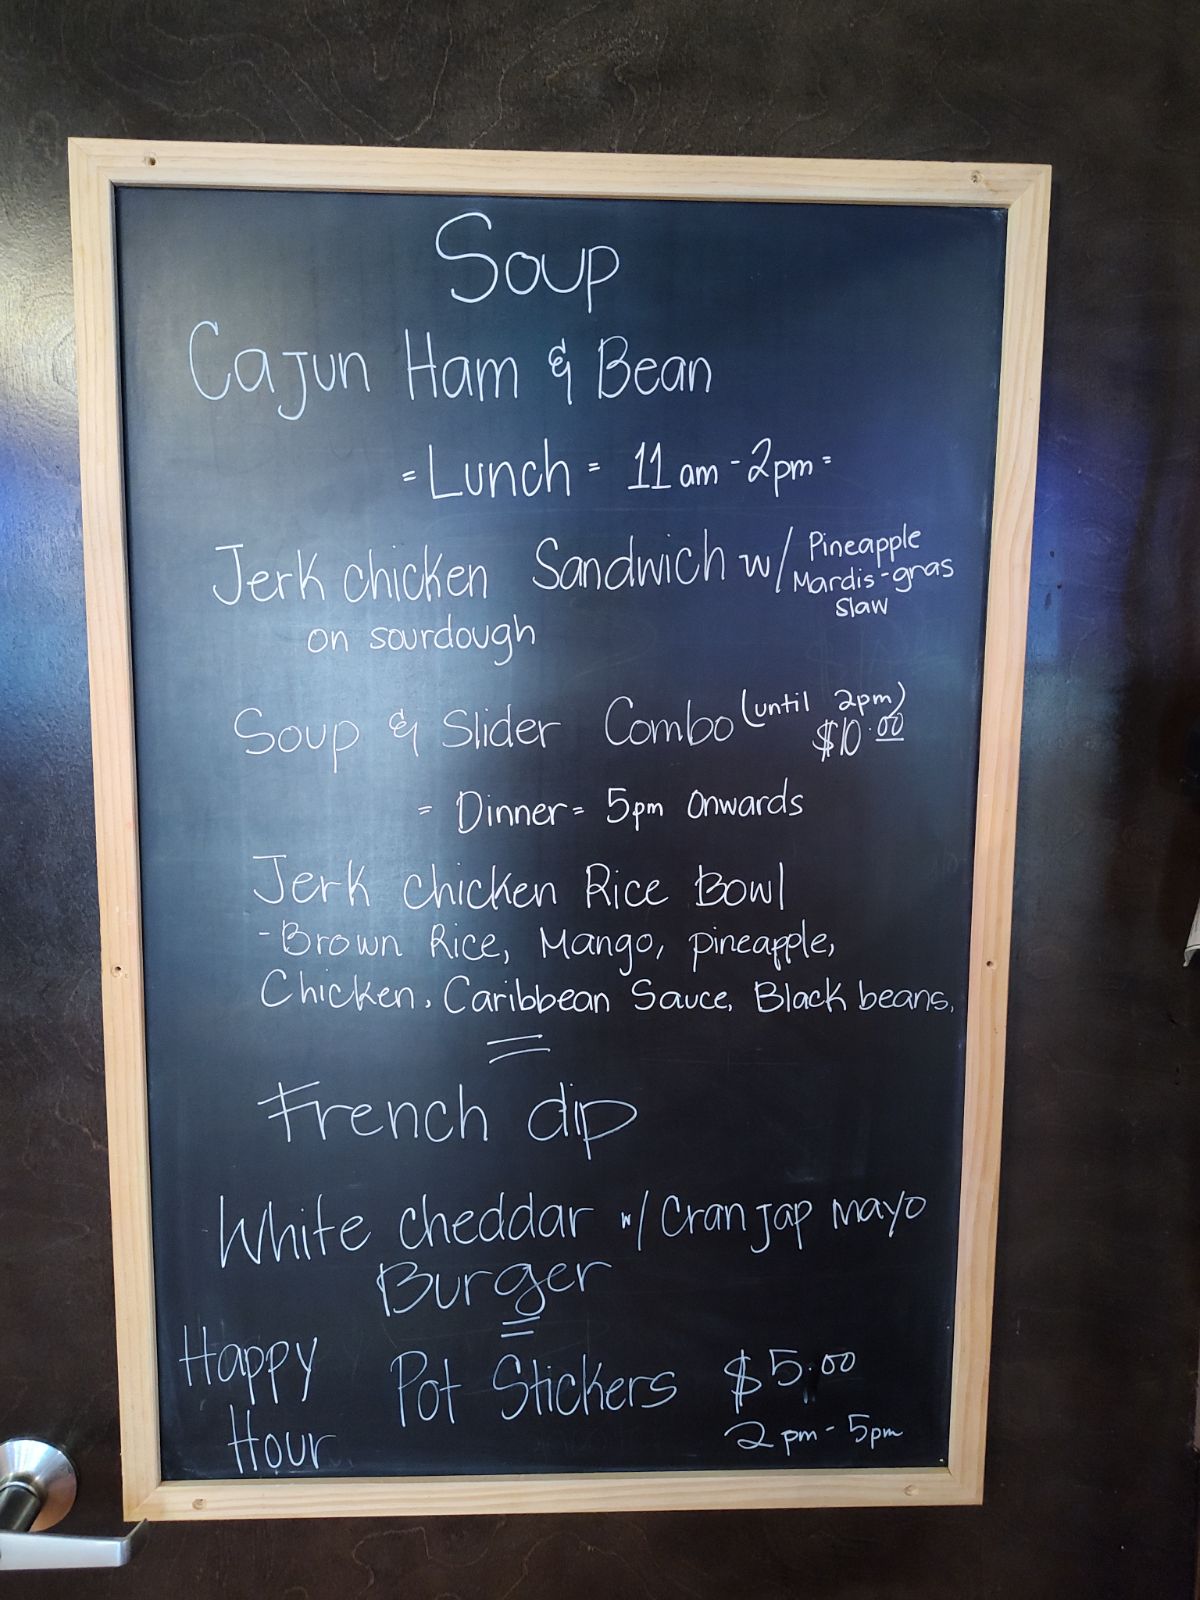 Soup
Cajun Ham & Bean
= Lunch = 11am - 2pm =
Jerk chicken Sandwich w/ Pineapple
Mardis-gras
Slaw
on sourdough
Soup & Slider Combo (until 2pm)
$10.00
= Dinner = 5pm Onwards
Jerk chicken Rice Bowl
- Brown Rice, Mango, pineapple,
Chicken, Caribbean Sauce, Black beans,
French dip
White cheddar w/ Cran jap mayo
Burger
Happy
Hour
Pot Stickers $5.00
2pm - 5pm